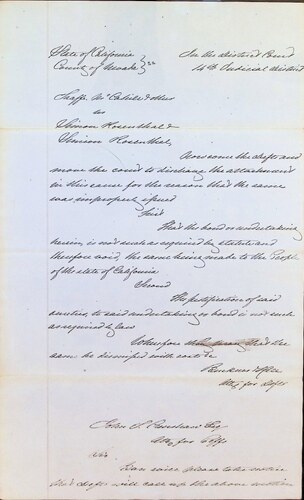 State of California } ss
County of Nevada
In the District Court
14th Judicial District
vs
Simon Rosenthal &
Simson Rosenthal,
Now come the defts and
move the court to discharge the attachment
in this cause for the reason that the same
was improperly issued
First
That the bond or undertaking
herein is not such as required by statute and
therefore void, the same being made to the People
of the state of California
Second
The justification of said
sureties to said undertaking or bond is not such
as required by law
Wherefore that the
same be dismissed with costs &c
Atty for Defts
John
Atty for Plffs
Sir
You will please to take notice
that Defts will call up the above motion